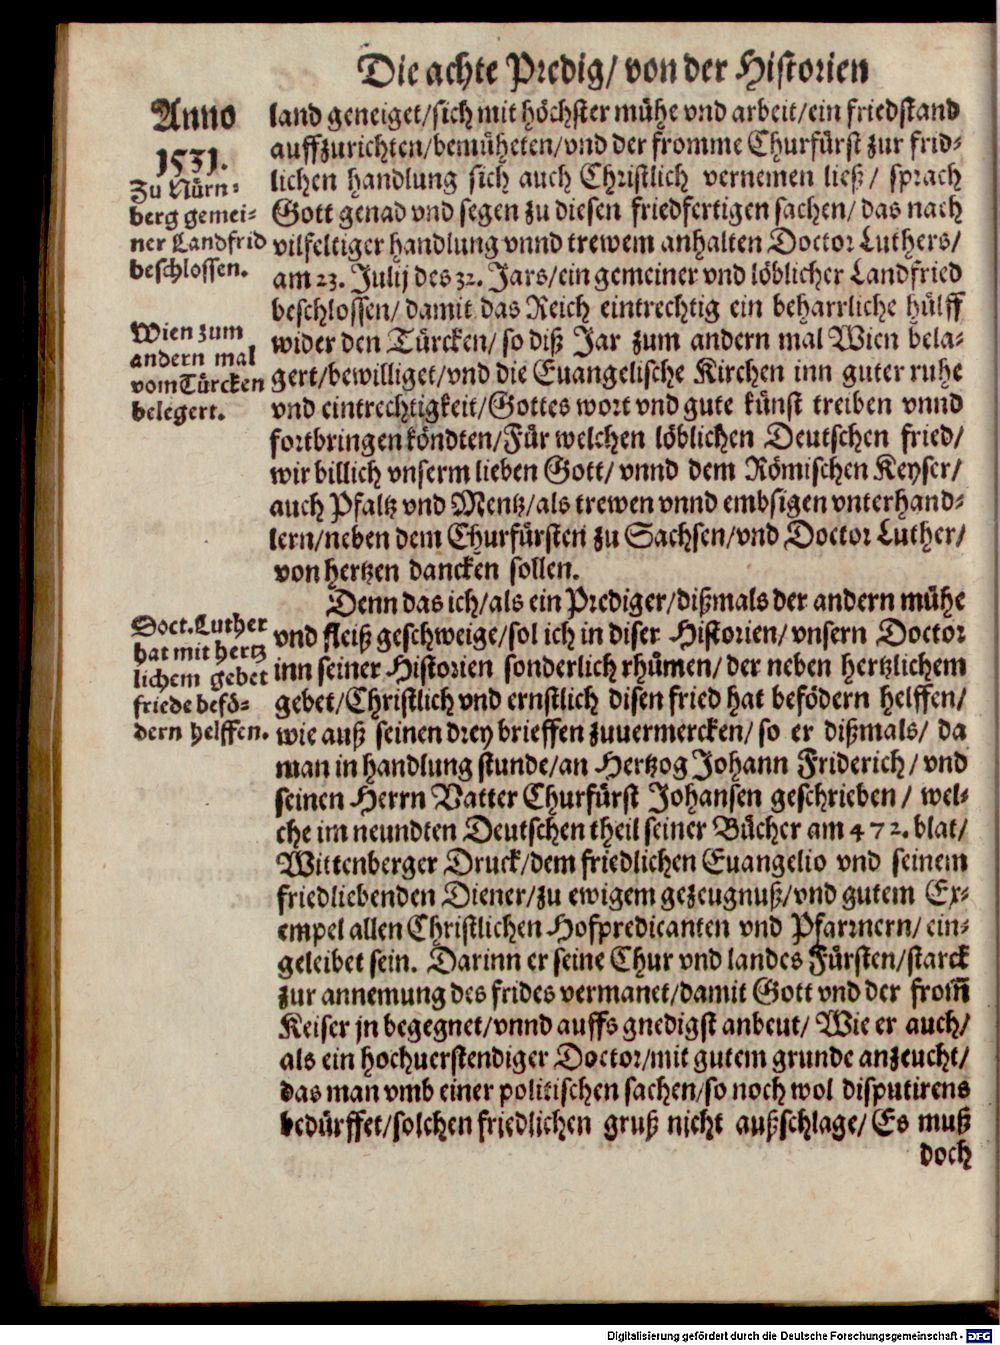 Die achte Predig/ von der Historien
Anno
1531.
Zu Nürn-
berg gemei-
ner Landfrid
beschlossen.
Wien zum
andern mal
vom Türcken
belegert.
land geneiget/sich mit höchster mühe vnd arbeit/ein friedstand
auffzurichten/bemüheten/vnd der fromme Churfürst zur frid-
lichen handlung sich auch Christlich vernemen ließ/ sprach
Gott genad vnd segen zu diesen friedfertigen sachen/ das nach
vilfeltiger handlung vnnd trewem anhalten Doctor Luthers/
am 23. Julij des 32. Jars/ein gemeiner vnd löblicher Landfried
beschlossen/ damit das Reich eintrechtig ein beharrliche hülff
wider den Türcken/ so diß Jar zum andern mal Wien bela-
gert/bewilliget/vnd die Euangelische Kirchen inn guter ruhe
vnd eintrechtigkeit/Gottes wort vnd gute künst treiben vnnd
fortbringen köndten/Für welchen löblichen Deutschen fried/
wir billich vnserm lieben Gott/ vnnd dem Römischen Keyser/
auch Pfaltz vnd Mentz/als trewen vnnd embsigen vnterhand-
lern/neben dem Churfürsten zu Sachsen/vnd Doctor Luther/
von hertzen dancken sollen.
Doct. Luther
hat mit hertz
lichem gebet
friede beför-
dern helffen.
Denn das ich/als ein Prediger/dißmals der andern mühe
vnd fleiß geschweige/sol ich in diser Historien/ vnsern Doctor
inn seiner Historien sonderlich rhümen/ der neben hertzlichem
gebet/Christlich vnd ernstlich disen fried hat befödern helffen/
wie auß seinen drey brieffen zuuermercken/ so er dißmals/ da
man in handlung stunde/an Hertzog Johann Friderich/ vnd
seinen Herrn Vatter Churfürst Johansen geschrieben/ wel-
che im neundten Deutschen theil seiner Bücher am 472. blat/
Wittenberger Druck/dem friedlichen Euangelio vnd seinem
friedliebenden Diener/zu ewigem gezeugnuß/vnd gutem Ex-
empel allen Christlichen Hofpredicanten vnd Pfarrnern/ ein-
geleibet sein. Darinn er seine Chur vnd landes Fürsten/starck
zur annemung des frides vermanet/damit Gott vnd der from̃
Keiser jn begegnet/vnnd auffs gnedigst anbeut/ Wie er auch/
als ein hochuerstendiger Doctor/mit gutem grunde anzeucht/
das man vmb einer politischen sachen/so noch wol disputirens
bedürffet/solchen friedlichen gruß nicht außschlage/ Es muß
doch
Digitalisierung gefördert durch die Deutsche Forschungsgemeinschaft - DFG